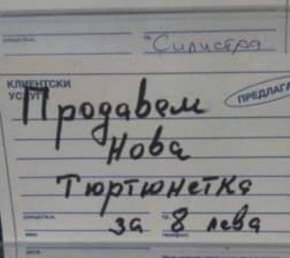 Силистра
КЛИЕНТСКИ
УСЛУГИ
ПРЕДЛАГА
Продавам
Нова
Тюртюнетка
за 8 лева